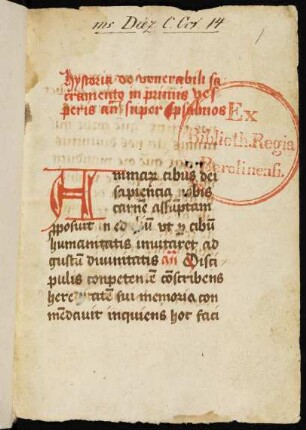 ms Diez C Oct 14
hystoria de venerabili sa
cramento in primis ves
peris añ super psalmos
Ex
Biblioth. Regia
Berolinensi.
Animarꝫ cibus dei
sapiencia nobis
carnē assūptam
pposuit in ed ut p cibū
humanitatis inuitaret ad
gustū diuinitatis añ Disci
pulis conpetentē cōscribens
hereditatē sui memoria con
mēdauit inquiens hoc faci